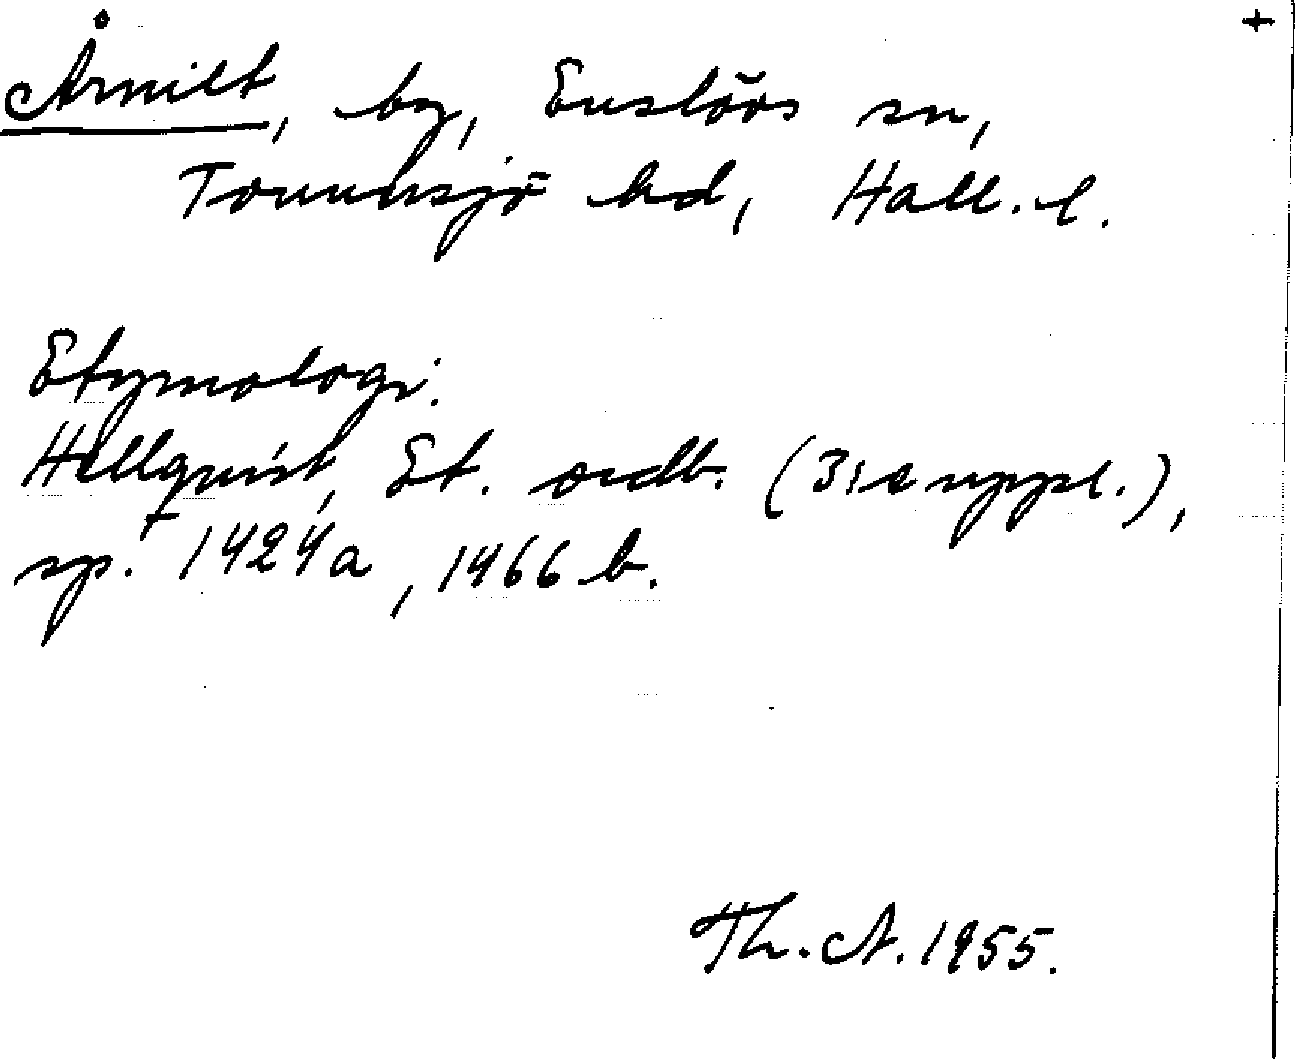 +
Årnilt, by, Enslövs sn,
Tönnersjö hd, Hall. l.
Etymologi:
Hellquist, Et. ordb. (3:e uppl.),
sp. 1424a, 1466 b.
Th. A. 1955.